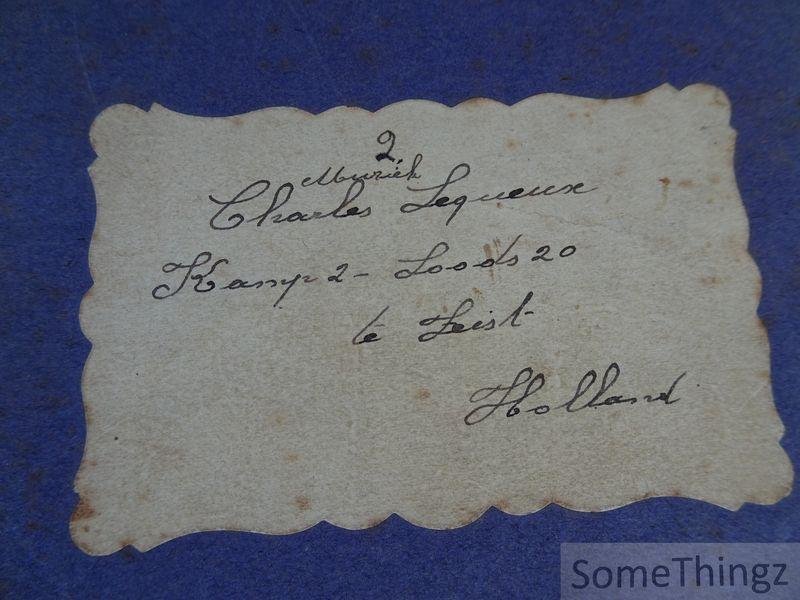 2
Muziek
Charles Lequeux
Kamp 2 - Loods 20
te Zeist
Holland
SomeThingz